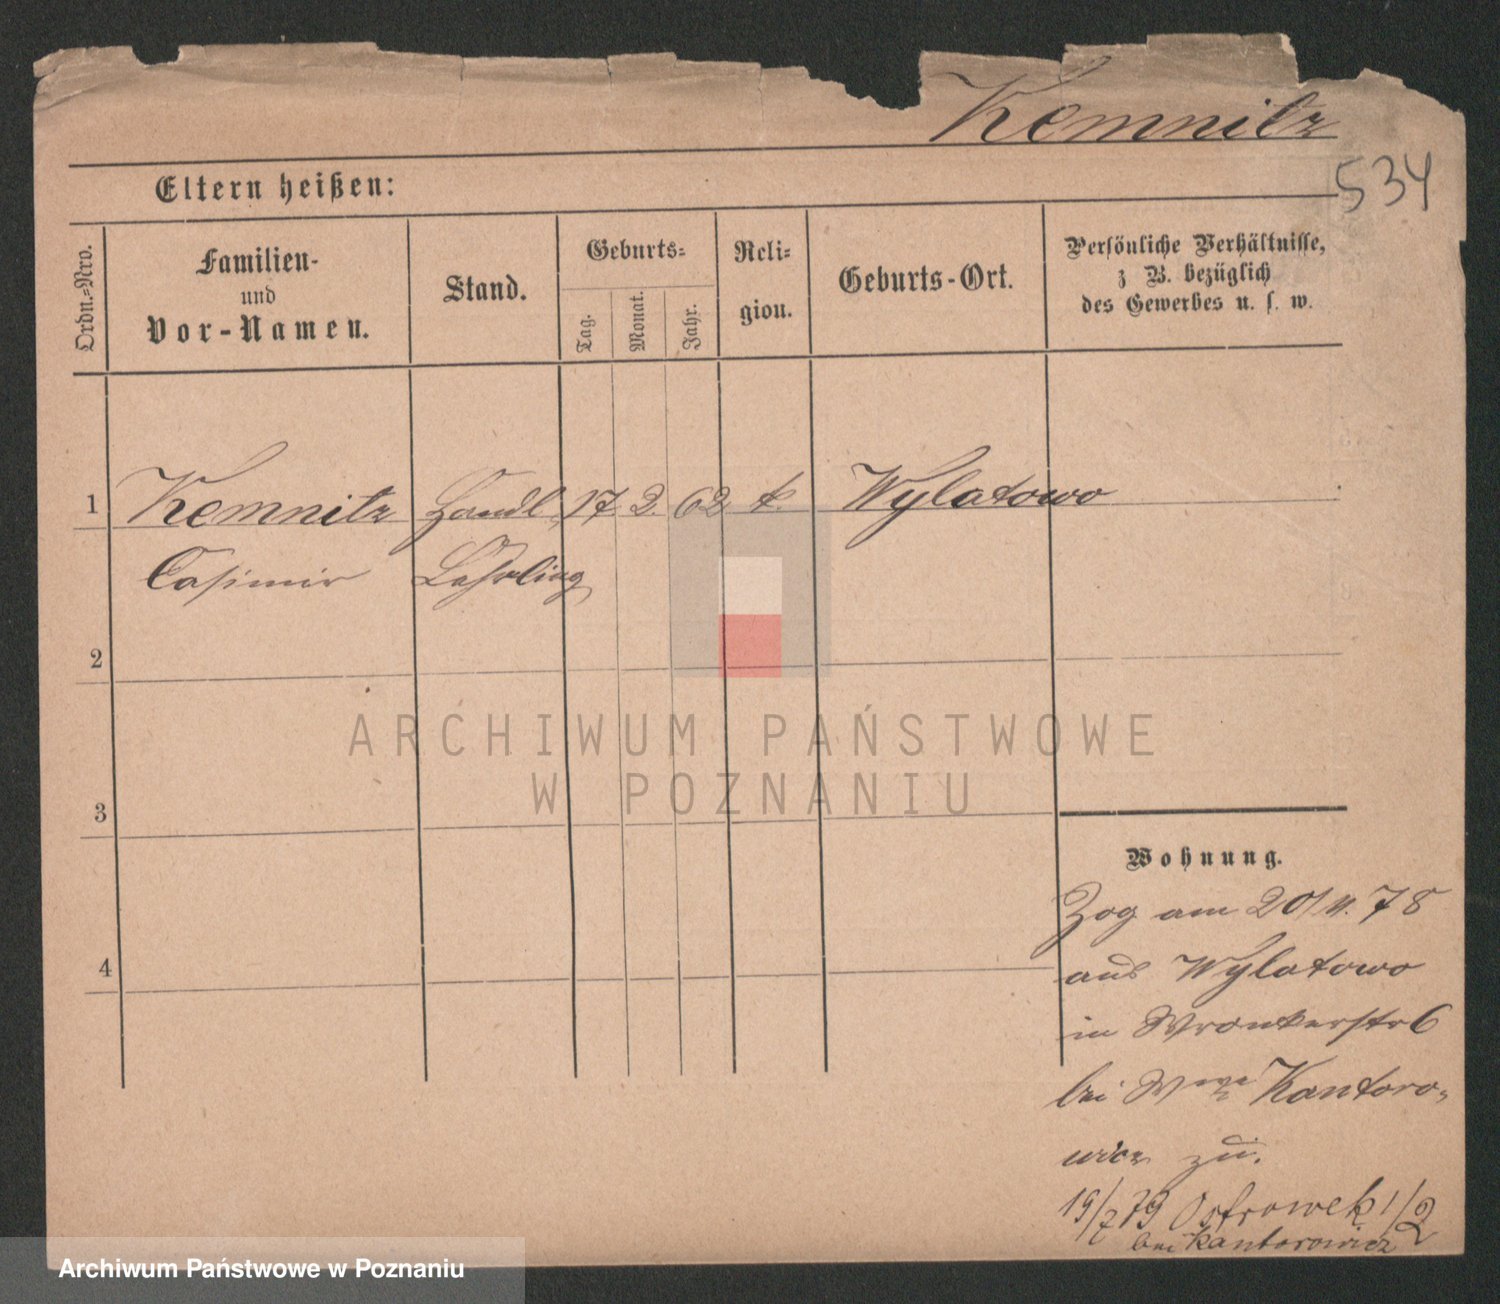 Kemnitz
534
Eltern heißen:
Ordn.-Nro.
Familien-
und
Vor-Namen.
Stand.
Geburts-
Tag.
Monat.
Jahr.
Reli-
gion.
Geburts-Ort.
Persönliche Verhältnisse,
z B. bezüglich
des Gewerbes u. s. w.
1 Kemnitz Handl. 17 2. 62 k. Wylatowo
Casimir Lehrling
2
3
4
ARCHIWUM PAŃSTWOWE
W POZNANIU
Wohnung.
Zog am 20/11. 78
aus Wylatowo
in Wronkerstr 6
bei Wwe Kantoro-
wicz zu.
19/7 79 Ostrowek 1/2
bei Kantorowicz
Archiwum Państwowe w Poznaniu